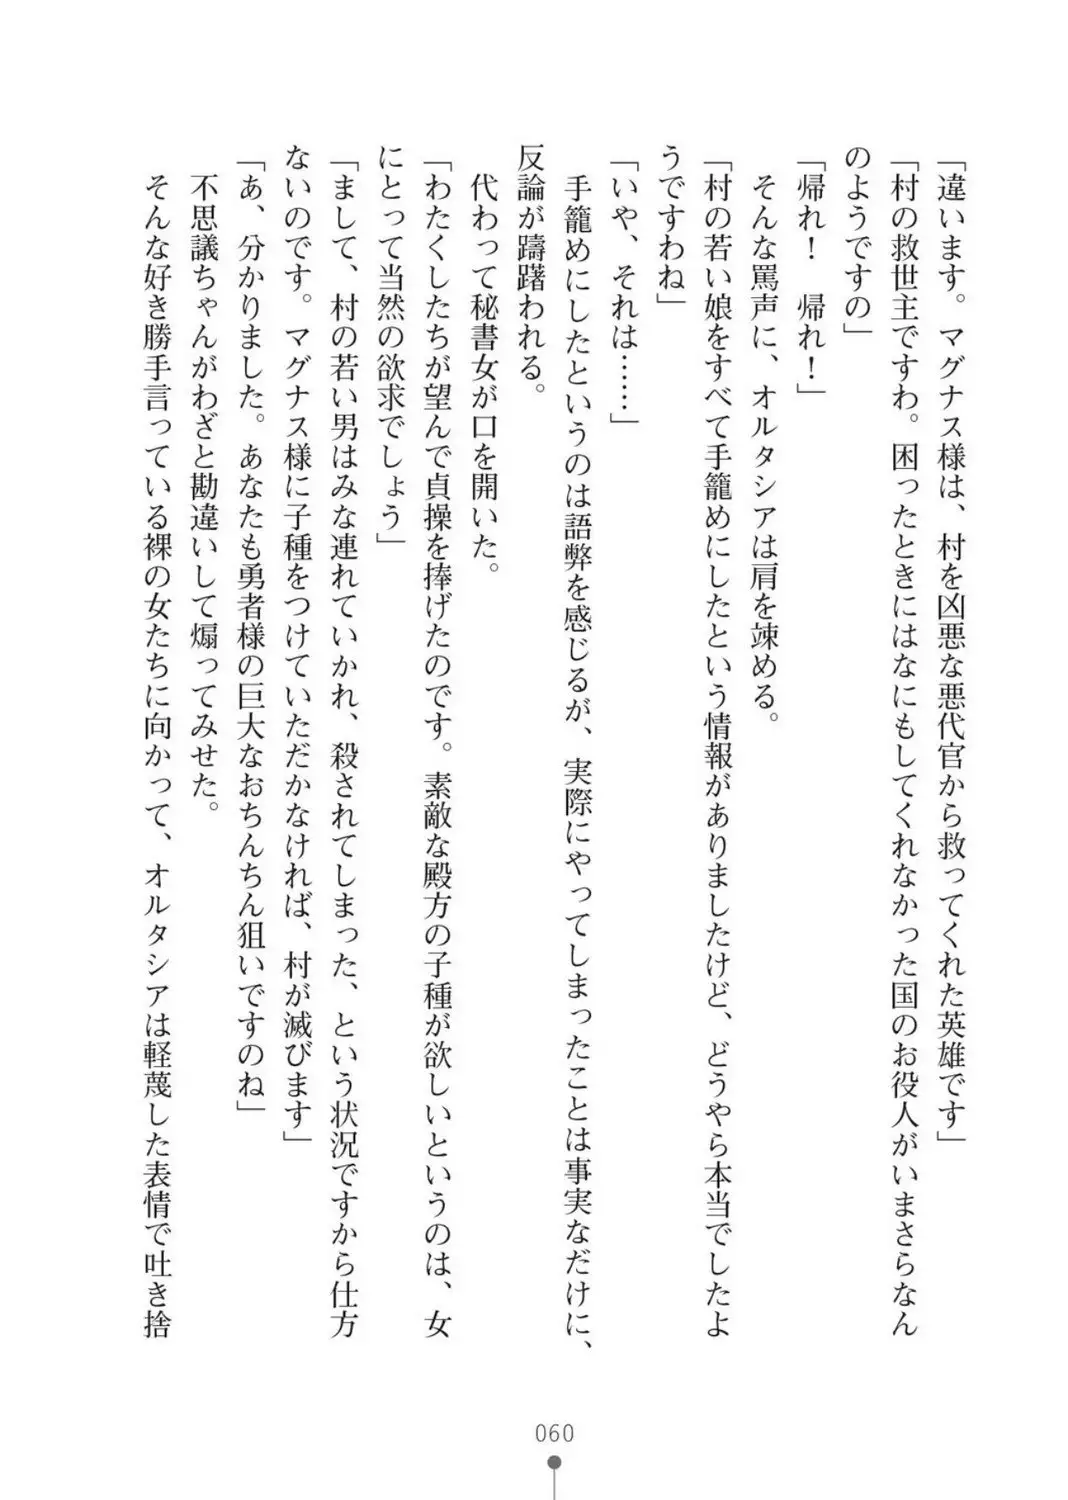 「違います。マグナス様は、村を凶悪な悪代官から救ってくれた英雄です」
「村の救世主ですわ。困ったときにはなにもしてくれなかった国のお役人がいまさらなん
のようですの」
「帰れ！　帰れ！」
　そんな罵声に、オルタシアは肩を竦める。
「村の若い娘をすべて手籠めにしたという情報がありましたけど、どうやら本当でしたよ
うですわね」
「いや、それは……」
　手籠めにしたというのは語弊を感じるが、実際にやってしまったことは事実なだけに、
反論が躊躇われる。
　代わって秘書女が口を開いた。
「わたくしたちが望んで貞操を捧げたのです。素敵な殿方の子種が欲しいというのは、女
にとって当然の欲求でしょう」
「まして、村の若い男はみな連れていかれ、殺されてしまった、という状況ですから仕方
ないのです。マグナス様に子種をつけていただかなければ、村が滅びます」
「あ、分かりました。あなたも勇者様の巨大なおちんちん狙いですのね」
　不思議ちゃんがわざと勘違いして煽ってみせた。
　そんな好き勝手言っている裸の女たちに向かって、オルタシアは軽蔑した表情で吐き捨
060